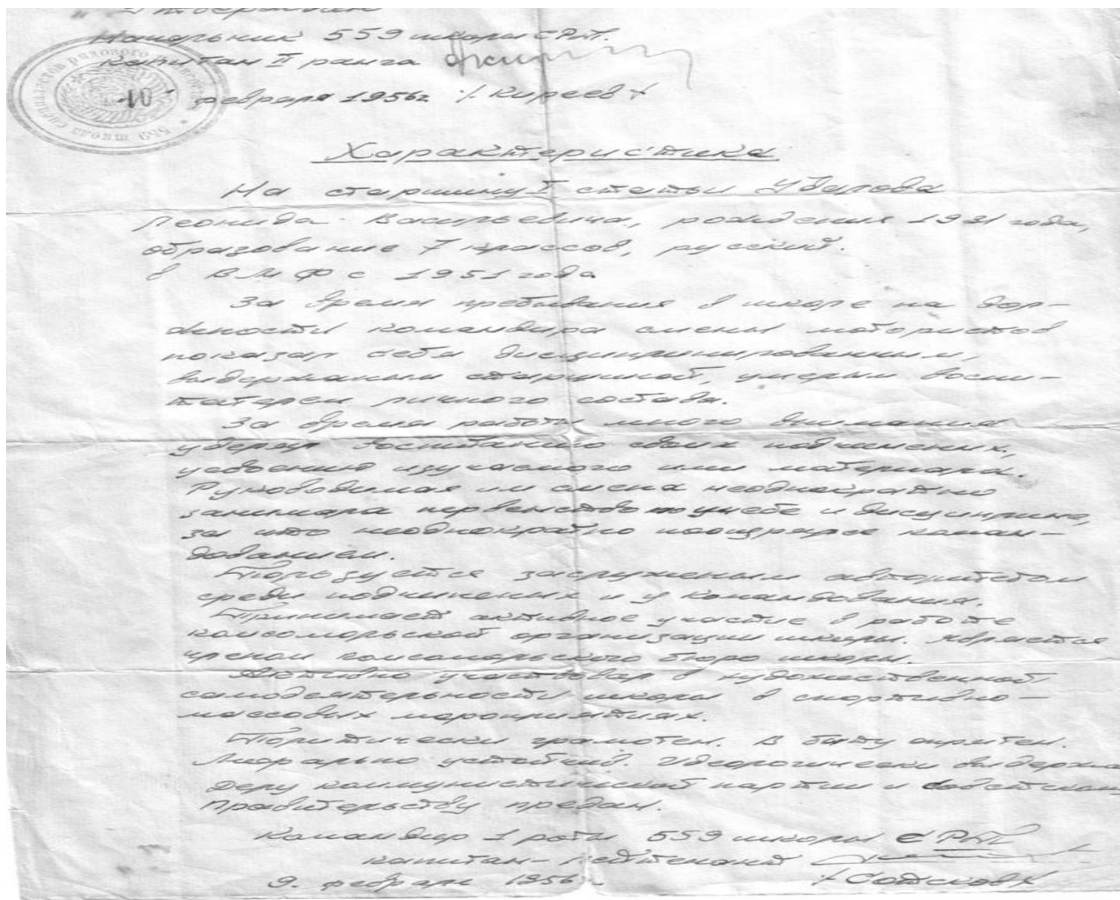 "Утверждаю"
Начальник 559 школы СРП.
капитан II ранга
10 февраля 1956г. /. Киреев /
559 школа специалистов рядового
Характеристика
На старшину I статьи Увалова
Леонида Васильевича, рождения 1931 года,
образование 7 классов, русский.
в В.М.Ф с 1951 года
За время пребывания в школе на дол-
жности командира смены мотористов
показал себя дисциплинированным,
выдержаным старшиной, умелым воспи-
тателем личного состава.
За время работы много внимания
уделял воспитанию своих подчиненных,
усвоения изучаемого ими материала.
Руководимая им смена неоднократно
занимала первенство по учебе и дисциплине,
за что неоднократно поощрялся коман-
дованием.
Пользуется заслуженым авторитетом
среди подчиненных и у командования.
Принимает активное участие в работе
комсомольской организации школы. является
членом комсомольского бюро школы.
Активно участвовал в художественной
самодеятельности школы в спортивно-
массовых мероприятиях.
Политически грамотен. В быту опрятен.
Морально устойчив. Идеологически выдержан
Делу коммунистической партии и Советскому
правительству предан.
Командир 1 роты 559 школы СРП
капитан-лейтенант
9. февраля 1956 г. / Сотсков /